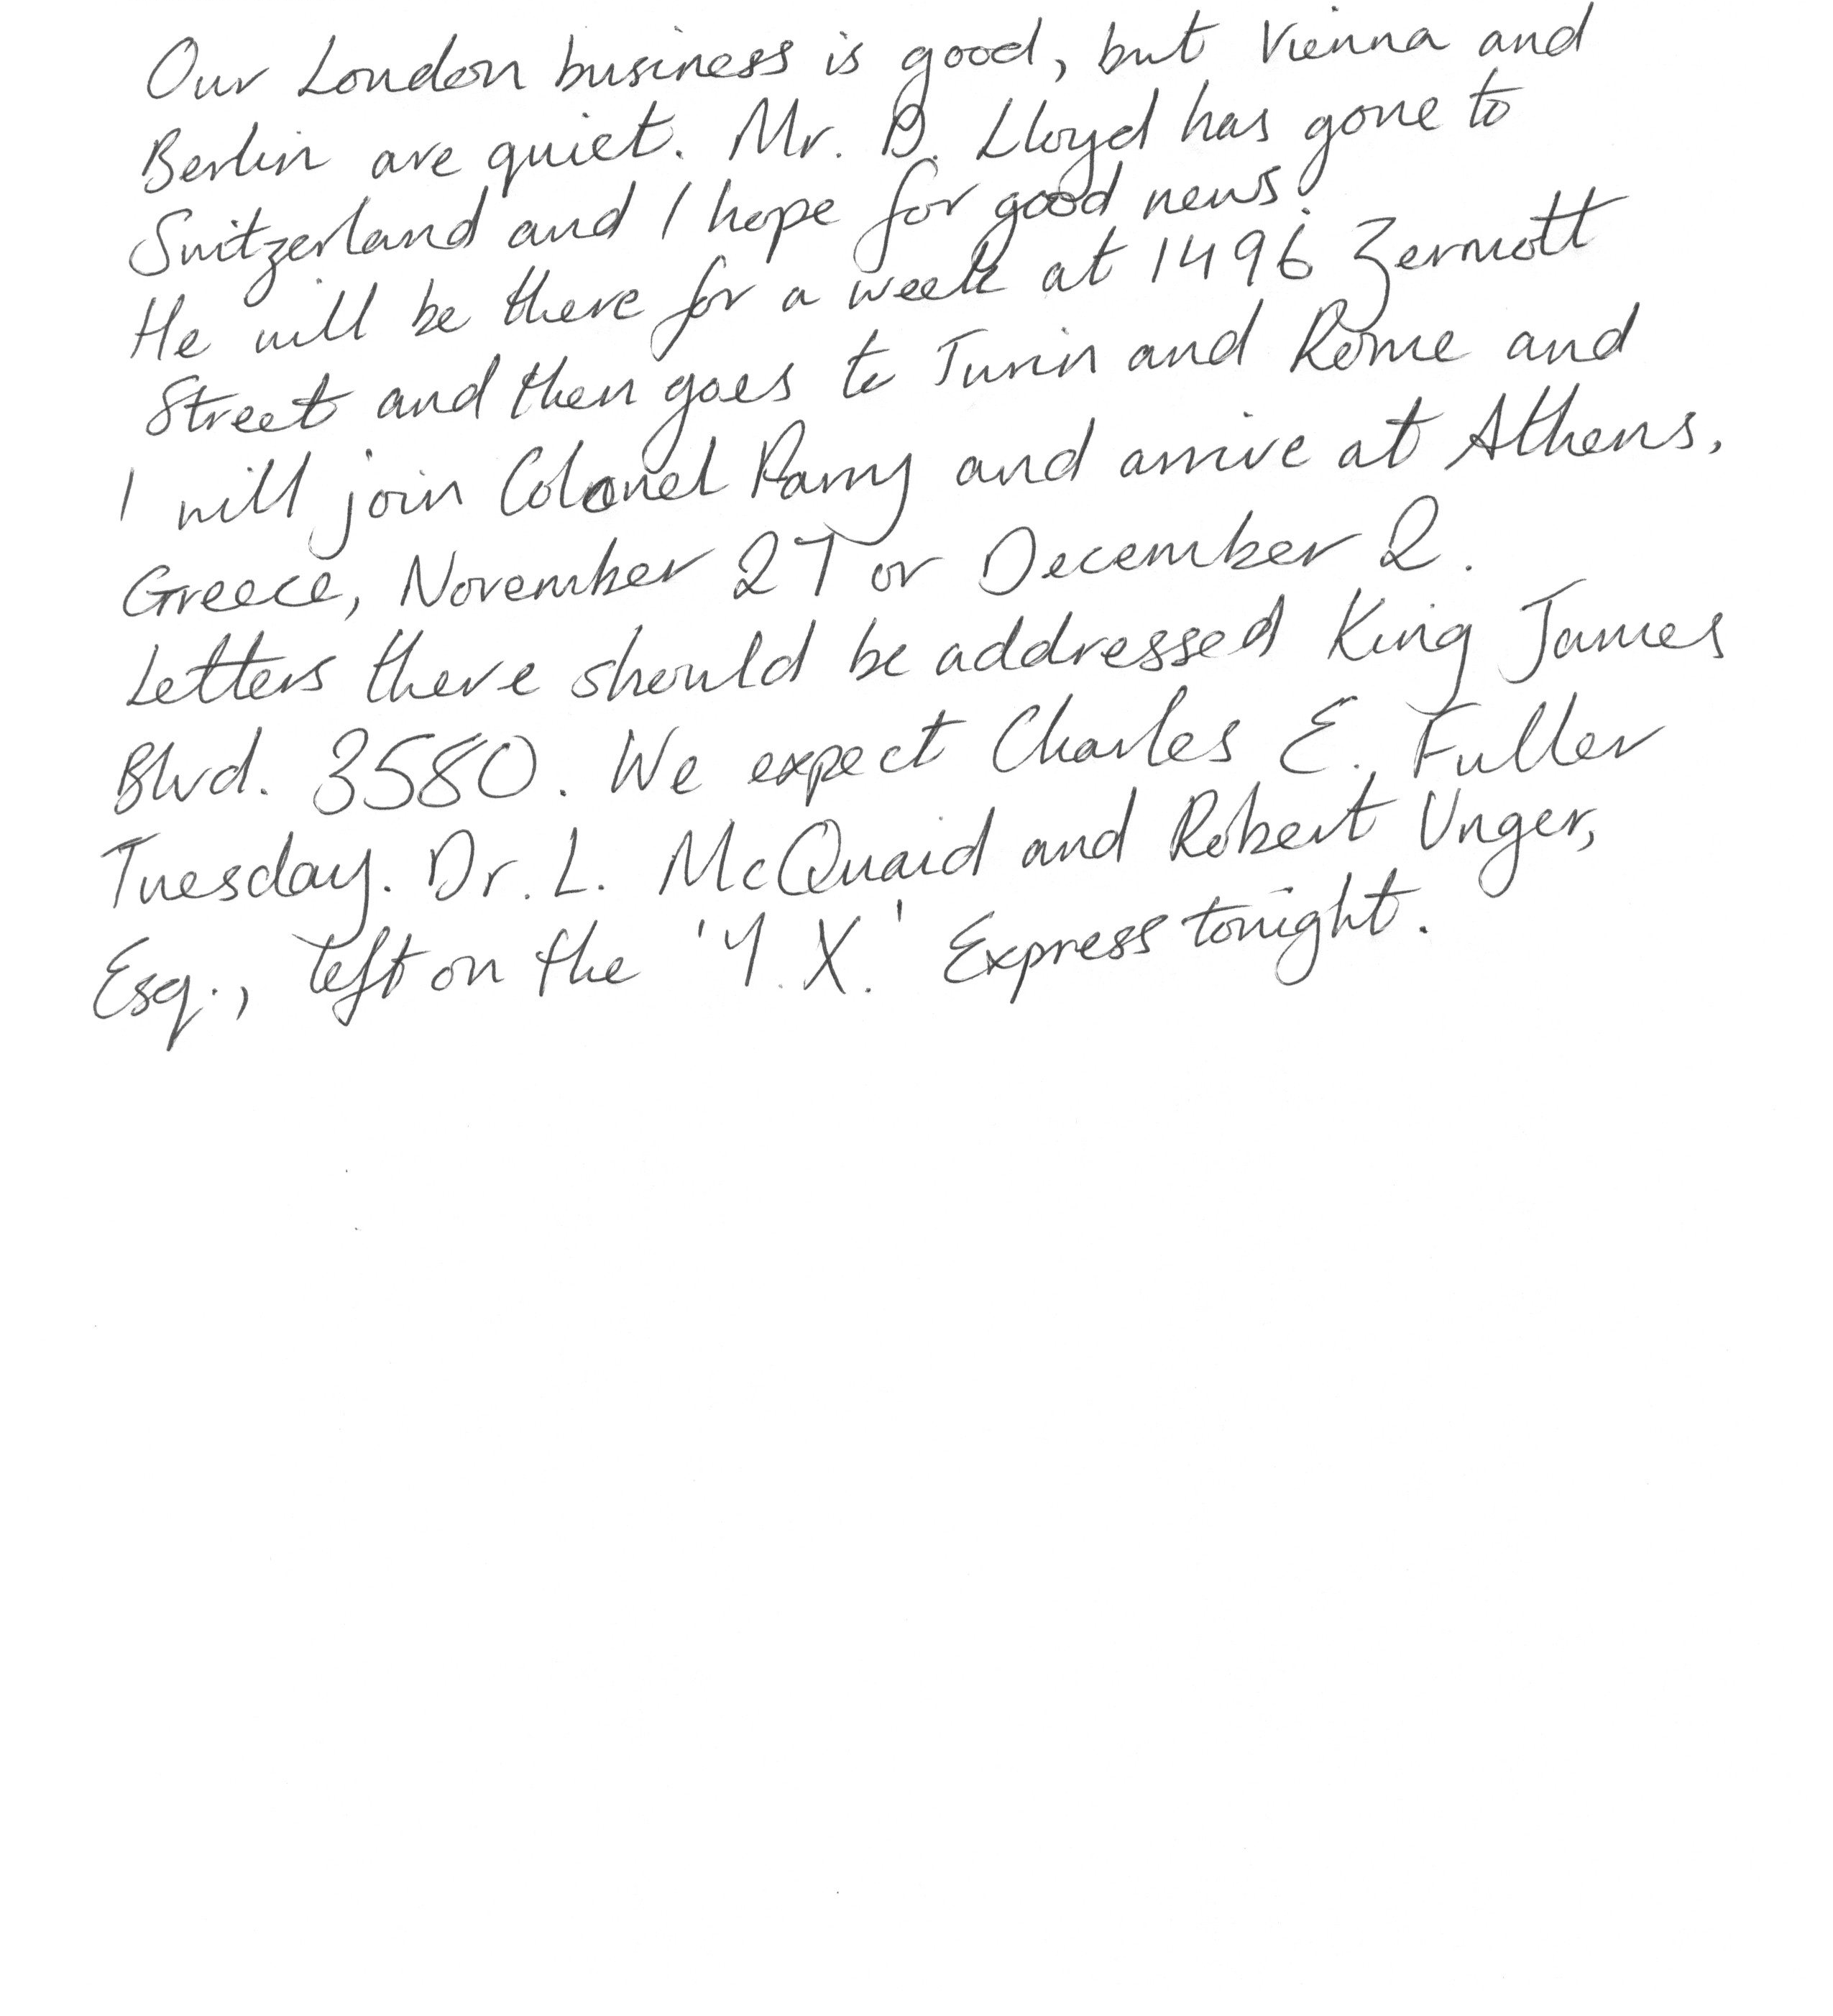 Our London business is good, but Vienna and
Berlin are quiet. Mr. D. Lloyd has gone to
Switzerland and I hope for good news.
He will be there for a week at 1496 Zermott
Street and then goes to Turin and Rome and
I will join Colonel Parry and arrive at Athens,
Greece, November 27 or December 2.
Letters there should be addressed King James
Blvd. 3580. We expect Charles E. Fuller
Tuesday. Dr. L. McQuaid and Robert Unger,
Esq., left on the 'Y. X.' Express tonight.